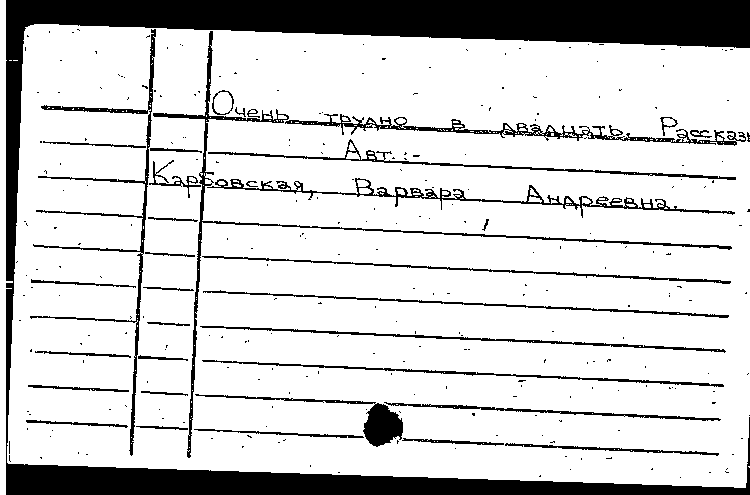 Очень трудно в двадцать. Рассказы
Авт.:-
Карбовская, Варвара Андреевна.